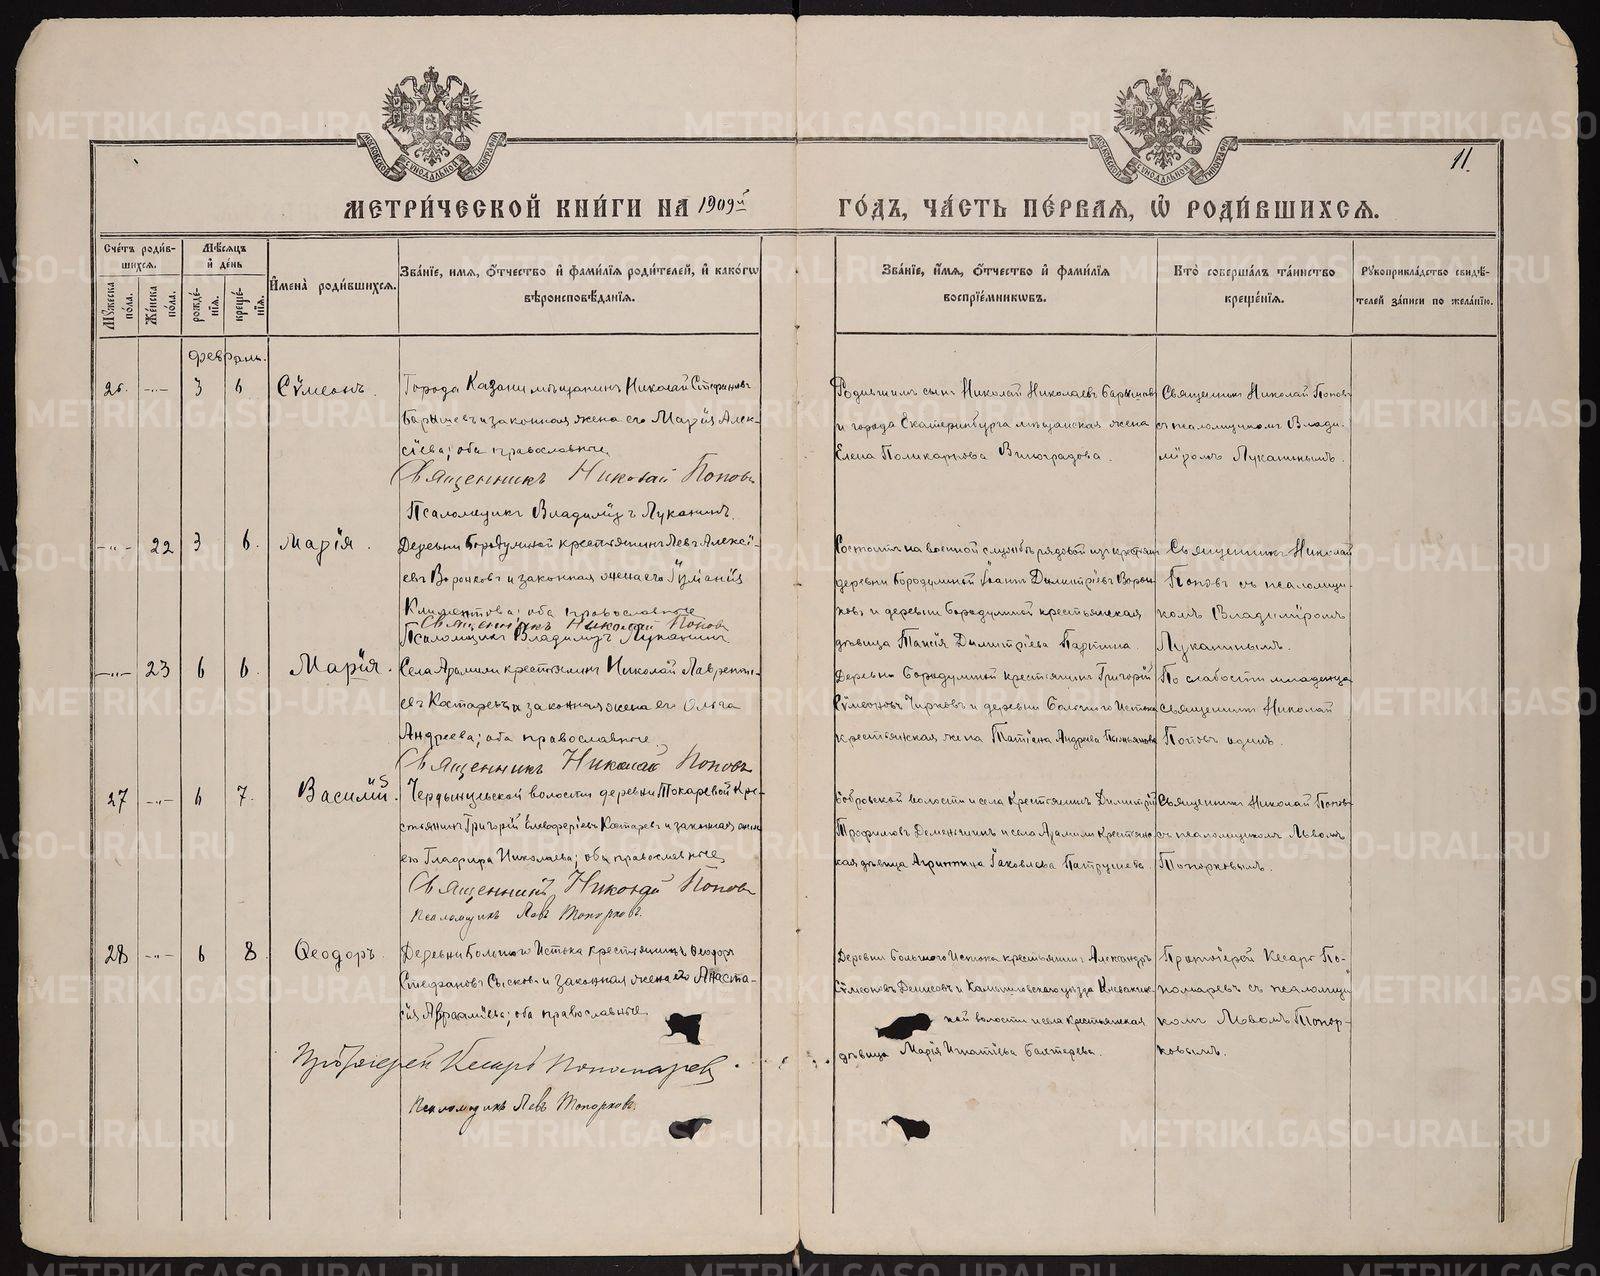 МОСКОВСКОЙ СѴНОДАЛЬНОЙ ТИПОГРАФІИ
МОСКОВСКОЙ СѴНОДАЛЬНОЙ ТИПОГРАФІИ
11.
МЕТРИ́ЧЕСКОЙ КНИ́ГИ НА 1909й
ГО́ДЪ, ЧА́СТЬ ПЕ́РВАѦ, Ѡ҆ РОДИ́ВШИХСѦ.
Счетъ родив-
шихсѧ.
Мꙋжеска пола.
Женска пола.
Мѣсѧцъ
и день
рожде-
нїѧ.
креще-
нїѧ.
Имена родившихсѧ.
Званїе, имѧ, отчество и фамилїѧ родителей, и какогѡ
вѣроисповѣданїѧ.
Званїе, имѧ, отчество и фамилїѧ
воспрїемникѡвъ.
Кто совершалъ таинство
крещенїѧ.
Рꙋкоприкладство свидѣ-
телей записи по желанїю.
Февраль.
26. —"— 3 6 Сѵмеонъ.
Города Казани мѣщанинъ Николай Стефановъ
Барышевъ и законная жена его Марія Алек-
сіева; оба православные
Священникъ Николай Поповъ
Псаломщикъ Владиміръ Луканинъ.
Родившимъ сынъ Николай Николаевъ Барышевъ
и города Екатеринбурга мѣщанская жена
Елена Поликарпова Виноградова.
Священникъ Николай Поповъ
съ псаломщикомъ Влади-
міромъ Луканинымъ.
—"— 22 3 6. Марія.
Деревни Бородулиной крестьянинъ Левъ Алексі-
евъ Воронковъ и законная жена его
Климентова; оба православные
Священникъ Николай Поповъ
Псаломщикъ Владиміръ Луканинъ
Состоитъ на военной службѣ рядовой изъ крестьянъ
деревни Бородулиной Іоаннъ Димитріевъ Ворон-
ковъ и деревни Бородулиной крестьянская
дѣвица Таисія Димитріева Партина.
Священникъ Николай
Поповъ съ псаломщи-
комъ Владиміромъ
Луканинымъ.
—"— 23 6 6. Марія.
Села Арамили крестьянинъ Николай Лавренті-
евъ Костаревъ и законная жена его Ольга
Андреева; оба православные
Священникъ Николай Поповъ
Деревни Бородулиной крестьянинъ Григорій
Сѵмеоновъ Чирковъ и деревни Большого Истока
крестьянская жена Татіана Андреева
По слабости младенца
священникъ Николай
Поповъ одинъ.
27 —"— 6 7. Василій.
волости деревни Токаревой кре-
стьянинъ Григорій Елевферіевъ Костаревъ и законная жена
его Глафира Николаева; оба православные
Священникъ Николай Поповъ
Псаломщикъ Левъ Топорковъ.
Бобровской волости и села крестьянинъ Димитрій
Трофимовъ Деменьшинъ и села Арамили крестьянс-
кая дѣвица Агриппина Іаковлева Патрушева.
Священникъ Николай Поповъ
съ псаломщикомъ Львомъ
Топорковымъ.
28 —"— 6 8 Ѳеодоръ.
Деревни Большого Истока крестьянинъ Ѳеодоръ
Стефановъ Сысковъ и законная жена его Анаста-
сія Авраамова; оба православные
Протоіерей Кесарь Пономаревъ.
Псаломщикъ Левъ Топорковъ.
Деревни Большого Истока крестьянинъ Александръ
Сѵмеоновъ Денисовъ и Камышловскаго уѣзда
кой волости и села крестьянская
дѣвица Марія Игнатіева Бахтерева.
Протоіерей Кесарь По-
номаревъ съ псаломщи-
комъ Львомъ Топор-
ковымъ.